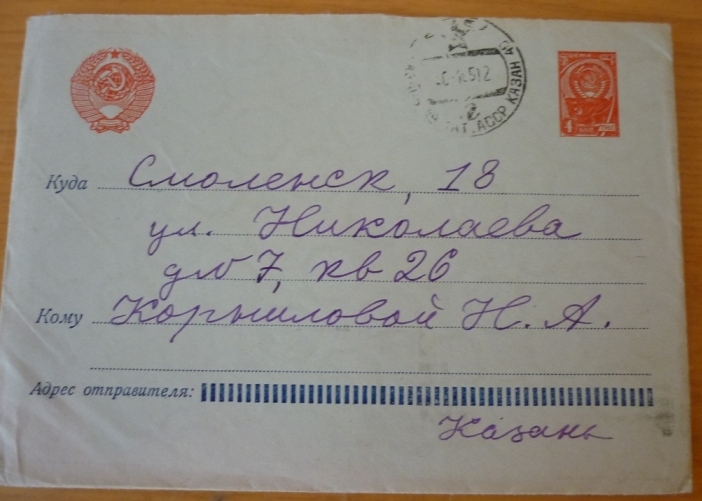 4
ТАТ. АССР КАЗАН
Куда Смоленск, 18
ул. Николаева
д № 7, кв 26
Кому Корниловой Н. А.
Адрес отправителя:
Казань